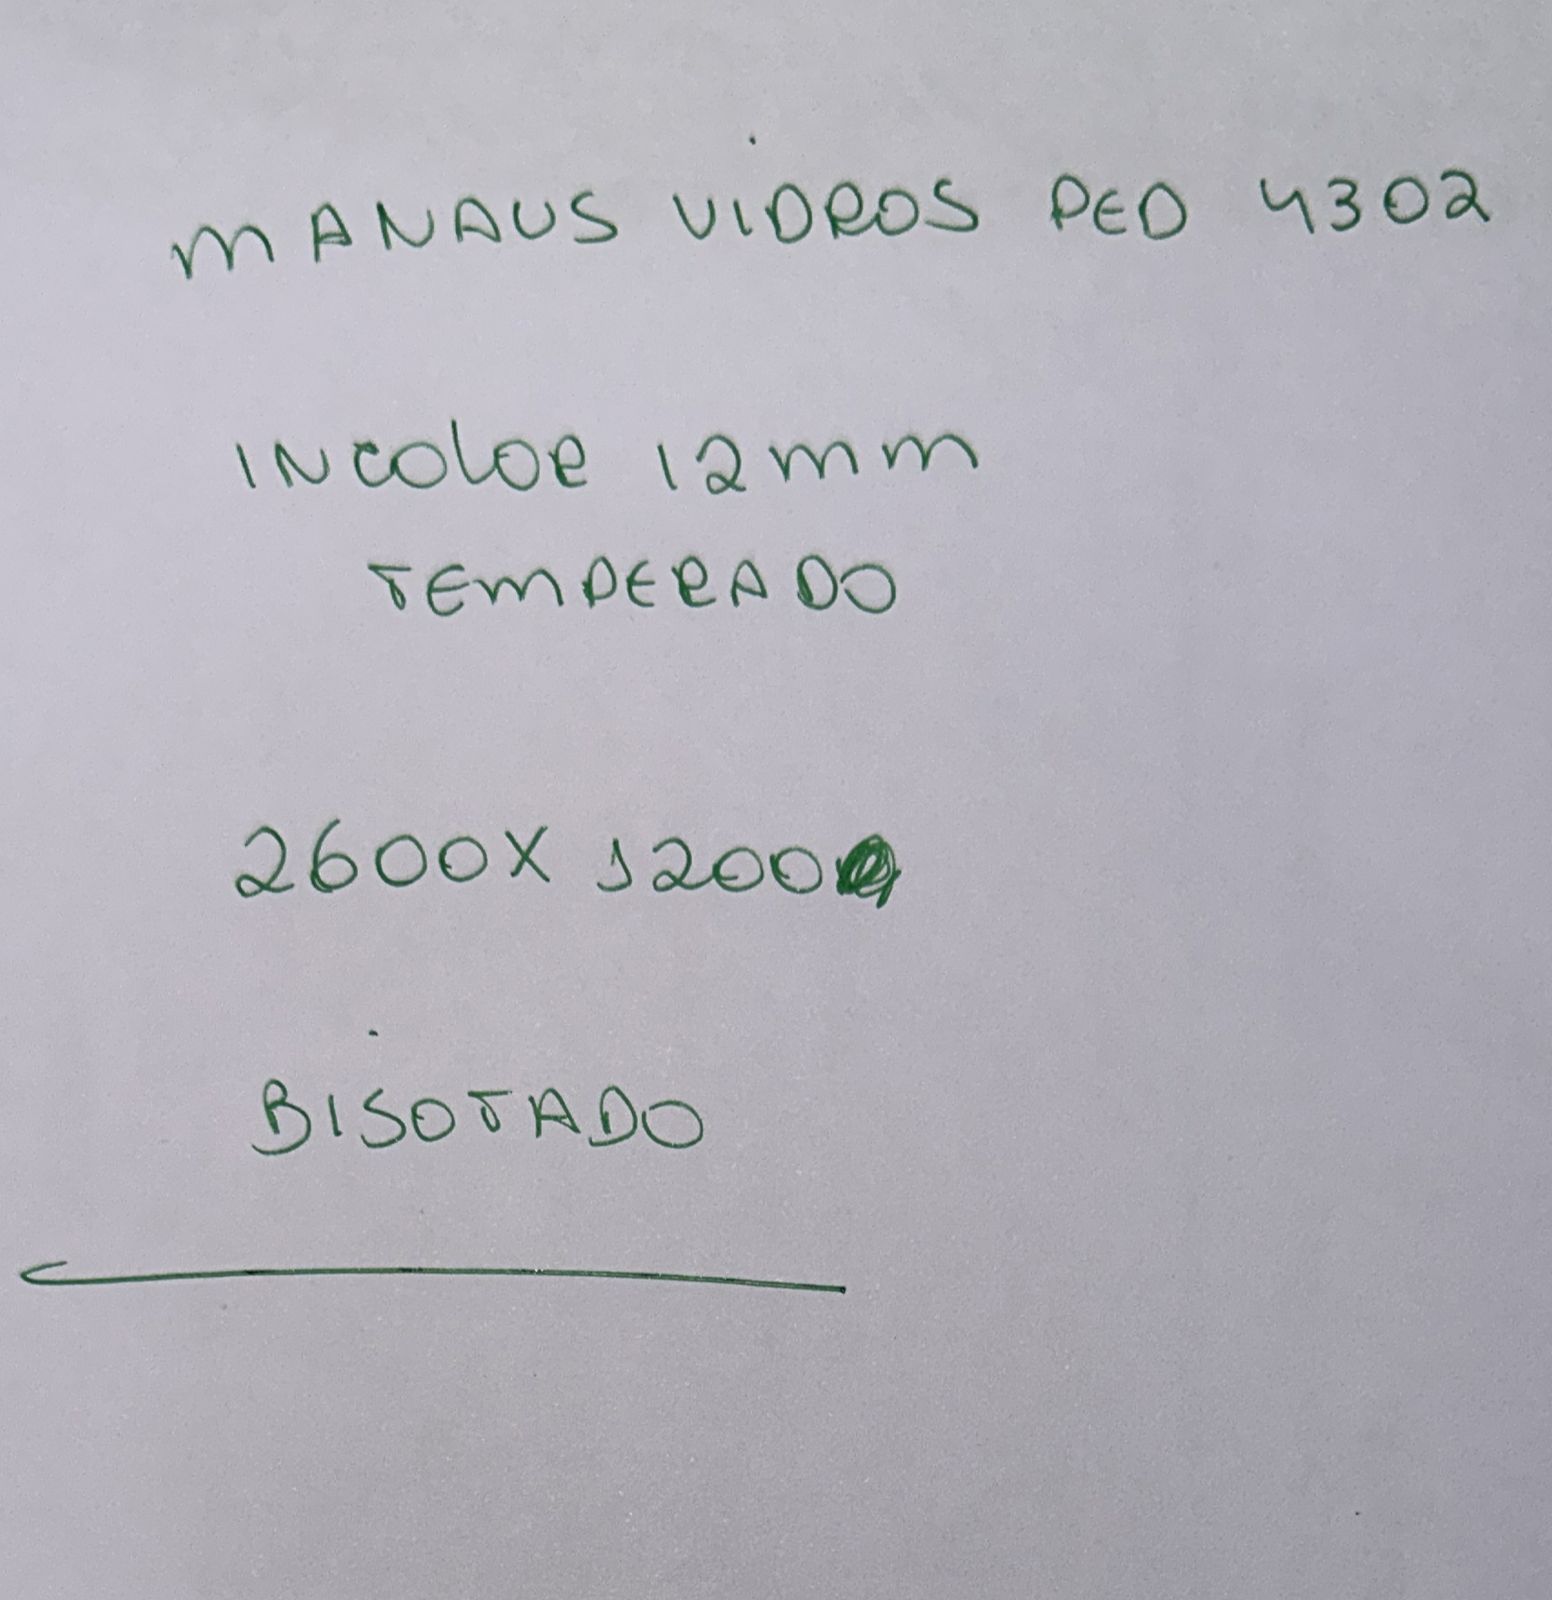 MANAUS VIDROS PED 4302
INCOLOR 12mm
TEMPERADO
2600X 1200
BISOTADO